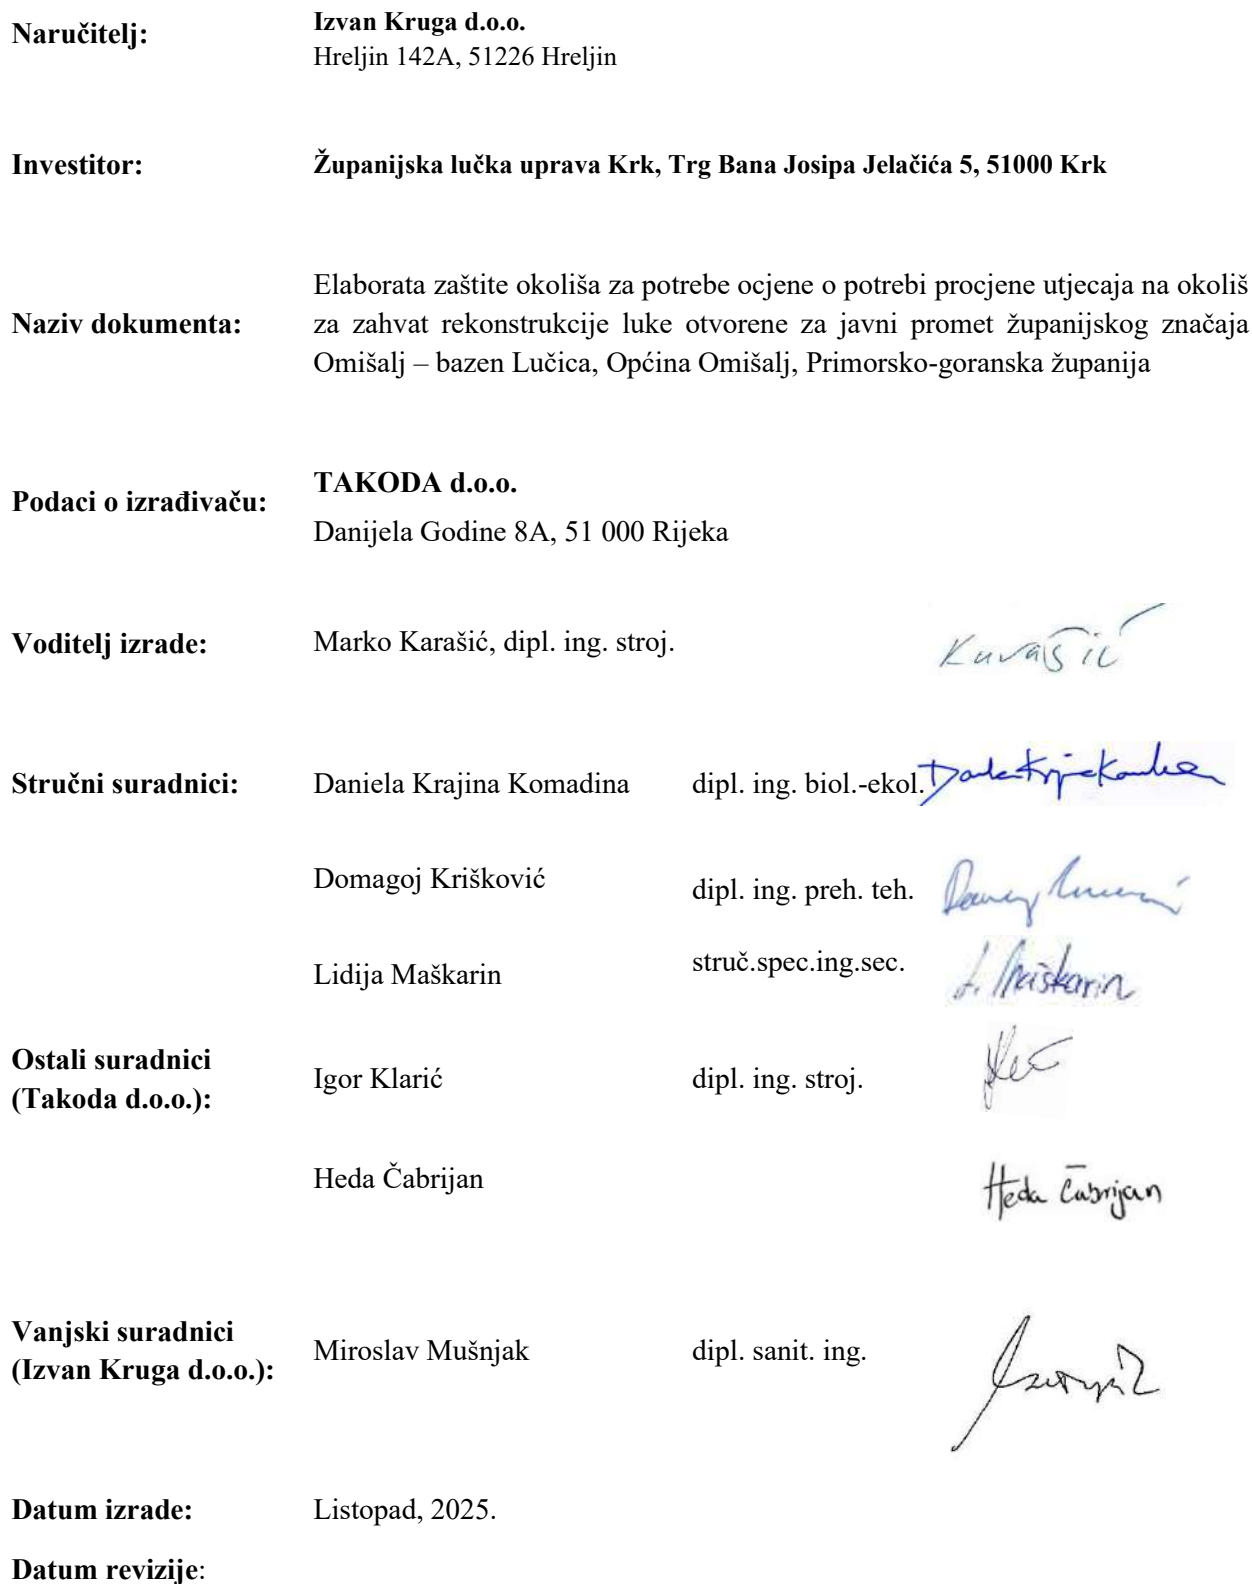 Naručitelj: Izvan Kruga d.o.o.
Hreljin 142A, 51226 Hreljin
Investitor: Županijska lučka uprava Krk, Trg Bana Josipa Jelačića 5, 51000 Krk
Elaborata zaštite okoliša za potrebe ocjene o potrebi procjene utjecaja na okoliš
Naziv dokumenta: za zahvat rekonstrukcije luke otvorene za javni promet županijskog značaja
Omišalj – bazen Lučica, Općina Omišalj, Primorsko-goranska županija
Podaci o izrađivaču: TAKODA d.o.o.
Danijela Godine 8A, 51 000 Rijeka
Voditelj izrade: Marko Karašić, dipl. ing. stroj. Karašić
Stručni suradnici: Daniela Krajina Komadina dipl. ing. biol.-ekol.
Domagoj Krišković dipl. ing. preh. teh.
Lidija Maškarin struč.spec.ing.sec. L. Maškarin
Ostali suradnici
(Takoda d.o.o.): Igor Klarić dipl. ing. stroj.
Heda Čabrijan Heda Čabrijan
Vanjski suradnici
(Izvan Kruga d.o.o.): Miroslav Mušnjak dipl. sanit. ing.
Datum izrade: Listopad, 2025.
Datum revizije: